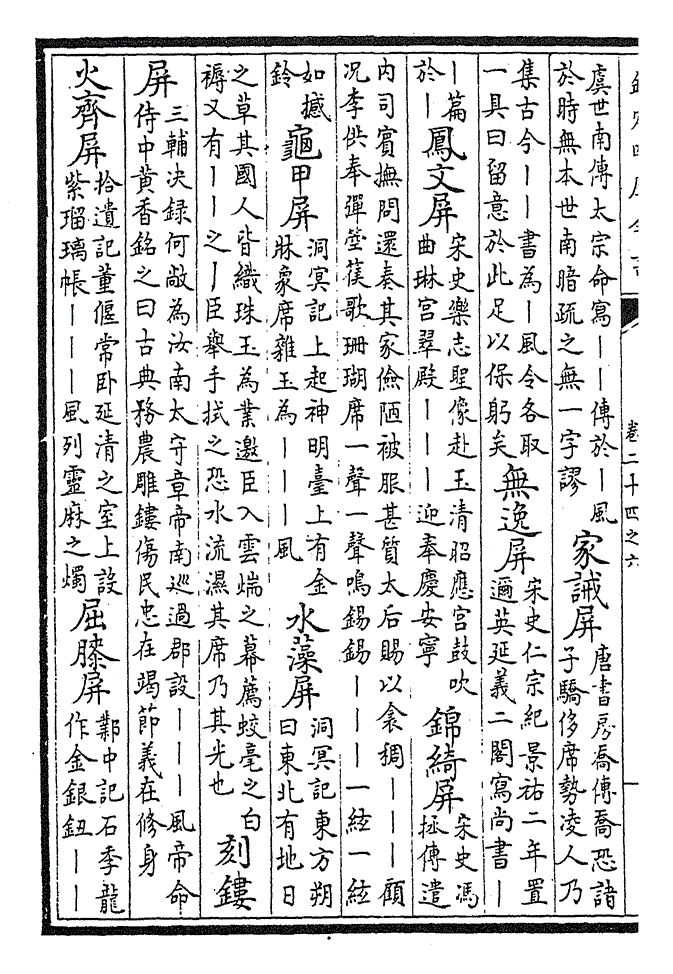 卷二十四之六
虞世南傳太宗命寫——傳於—風
於時無本世南暗疏之無一字謬
家誡屏
唐書房喬傳喬恐諸
子驕侈席勢凌人乃
集古今——書為—風令各取
一具曰留意於此足以保躬矣
無逸屏
宋史仁宗紀景祐二年置
邇英延義二閣寫尚書—
—篇
於—
鳳文屏
宋史樂志聖像赴玉清昭應宮鼓吹
曲琳宮翠殿———迎奉慶安寧
錦綺屏
宋史馮
拯傳遣
内司賓撫問還奏其家儉陋被服甚質太后賜以衾裯———顧
况李供奉彈箜篌歌珊瑚席一聲一聲鳴錫錫———一絃一絃
如撼
鈴
龜甲屏
洞冥記上起神明臺上有金
牀象席雜玉為———風
水藻屏
洞冥記東方朔
曰東北有地日
之草其國人皆織珠玉為業邀臣入雲端之幕薦蛟毫之白
褥又有——之—臣舉手拭之恐水流濕其席乃其光也
刻鏤
屏
三輔決録何敞為汝南太守章帝南巡過郡設———風帝命
侍中黄香銘之曰古典務農雕鏤傷民忠在竭節義在修身
火齊屏
拾遺記董偃常卧延清之室上設
紫瑠璃帳———風列靈麻之燭
屈膝屏
鄴中記石季龍
作金銀鈕——